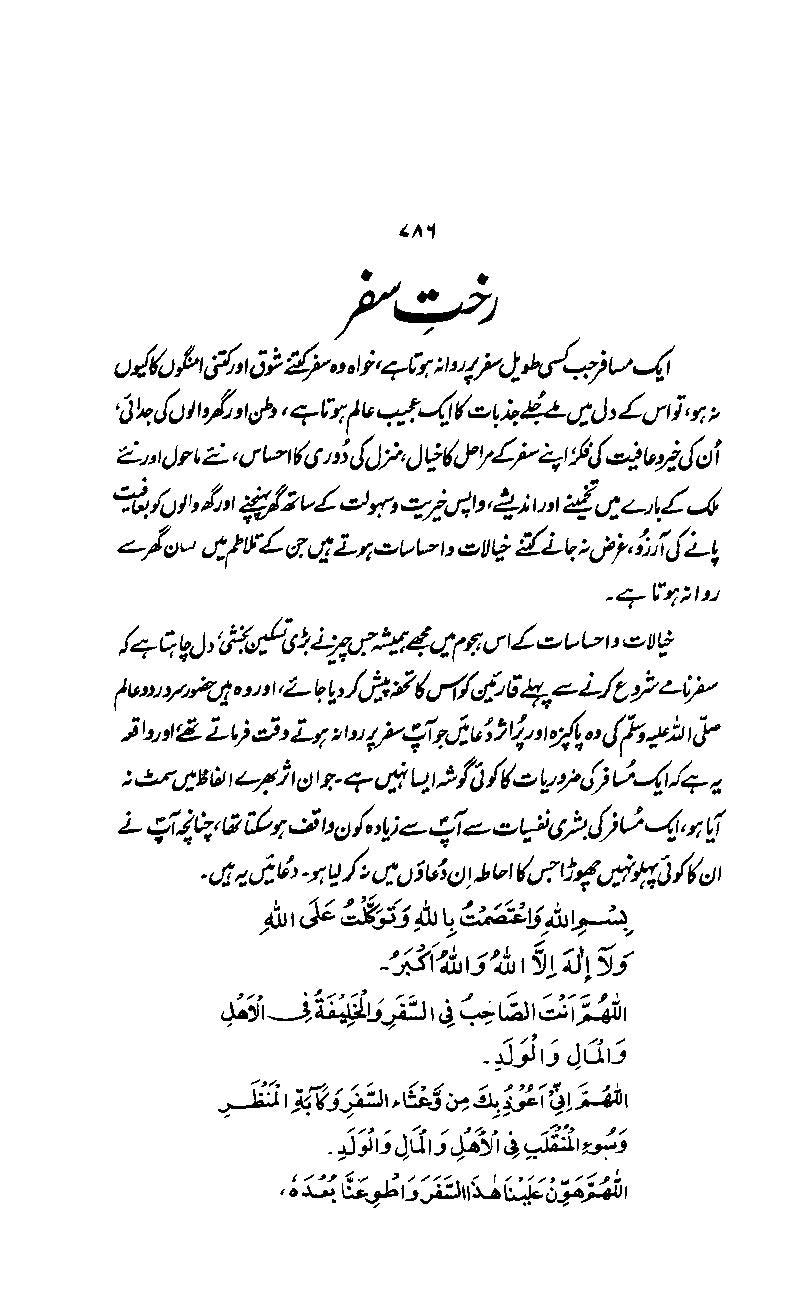 ۷۸۶
رختِ سفر
ایک مسافر جب کسی طویل سفر پر روانہ ہوتا ہے، خواہ وہ سفر کتنے شوق اور کتنی امنگوں کا کیوں
نہ ہو، تو اس کے دل میں ملے جُلے جذبات کا ایک عجیب عالم ہوتا ہے، وطن اور گھر والوں کی جدائی،
اُن کی خیر و عافیت کی فکر، اپنے سفر کے مراحل کا خیال، منزل کی دُوری کا احساس، نئے ماحول اور نئے
ملک کے بارے میں تخمینے اور اندیشے، واپس خیریت و سہولت کے ساتھ گھر پہنچنے اور گھر والوں کو بعافیت
پانے کی آرزو، غرض نہ جانے کتنے خیالات و احساسات ہوتے ہیں جن کے تلاطم میں انسان گھر سے
روانہ ہوتا ہے۔
خیالات و احساسات کے اس ہجوم میں مجھے ہمیشہ جس چیز نے بڑی تسکین بخشی، دل چاہتا ہے کہ
سفرنامے شروع کرنے سے پہلے قارئین کو اس کا تحفہ پیش کر دیا جائے، اور وہ ہیں حضور سرورِ دو عالم
صلّی اللہ علیہ وسلّم کی وہ پاکیزہ اور پُراثر دُعائیں جو آپؐ سفر پر روانہ ہوتے وقت فرماتے تھے، اور واقعہ
یہ ہے کہ ایک مُسافر کی ضروریات کا کوئی گوشہ ایسا نہیں ہے۔ جو ان اثر بھرے الفاظ میں سمٹ نہ
آیا ہو، ایک مُسافر کی بشری نفسیات سے آپؐ سے زیادہ کون واقف ہو سکتا تھا، چنانچہ آپؐ نے
ان کا کوئی پہلو نہیں چھوڑا جس کا احاطہ اِن دُعاؤں میں نہ کر لیا ہو۔ دعائیں یہ ہیں۔
بِسْمِ اللهِ وَاعْتَصَمْتُ بِاللهِ وَتَوَكَّلْتُ عَلَى اللهِ
وَلَآ إِلٰهَ إِلاَّ اللهُ وَاللهُ أَكْبَرُ۔
اللّٰهُمَّ اَنْتَ الصَّاحِبُ فِی السَّفَرِ وَالْخَلِيْفَةُ فِی الْاَهْلِ
وَالْمَالِ وَالْوَلَدِ۔
اللّٰهُمَّ اِنِّیْ اَعُوْذُ بِكَ مِنْ وَّعْثَاءِ السَّفَرِ وَكَآبَةِ الْمَنْظَرِ
وَسُوْءِ الْمُنْقَلَبِ فِی الْاَهْلِ وَالْمَالِ وَالْوَلَدِ۔
اللّٰهُمَّ هَوِّنْ عَلَيْنَا هٰذَا السَّفَرَ وَاطْوِ عَنَّا بُعْدَهٗ،